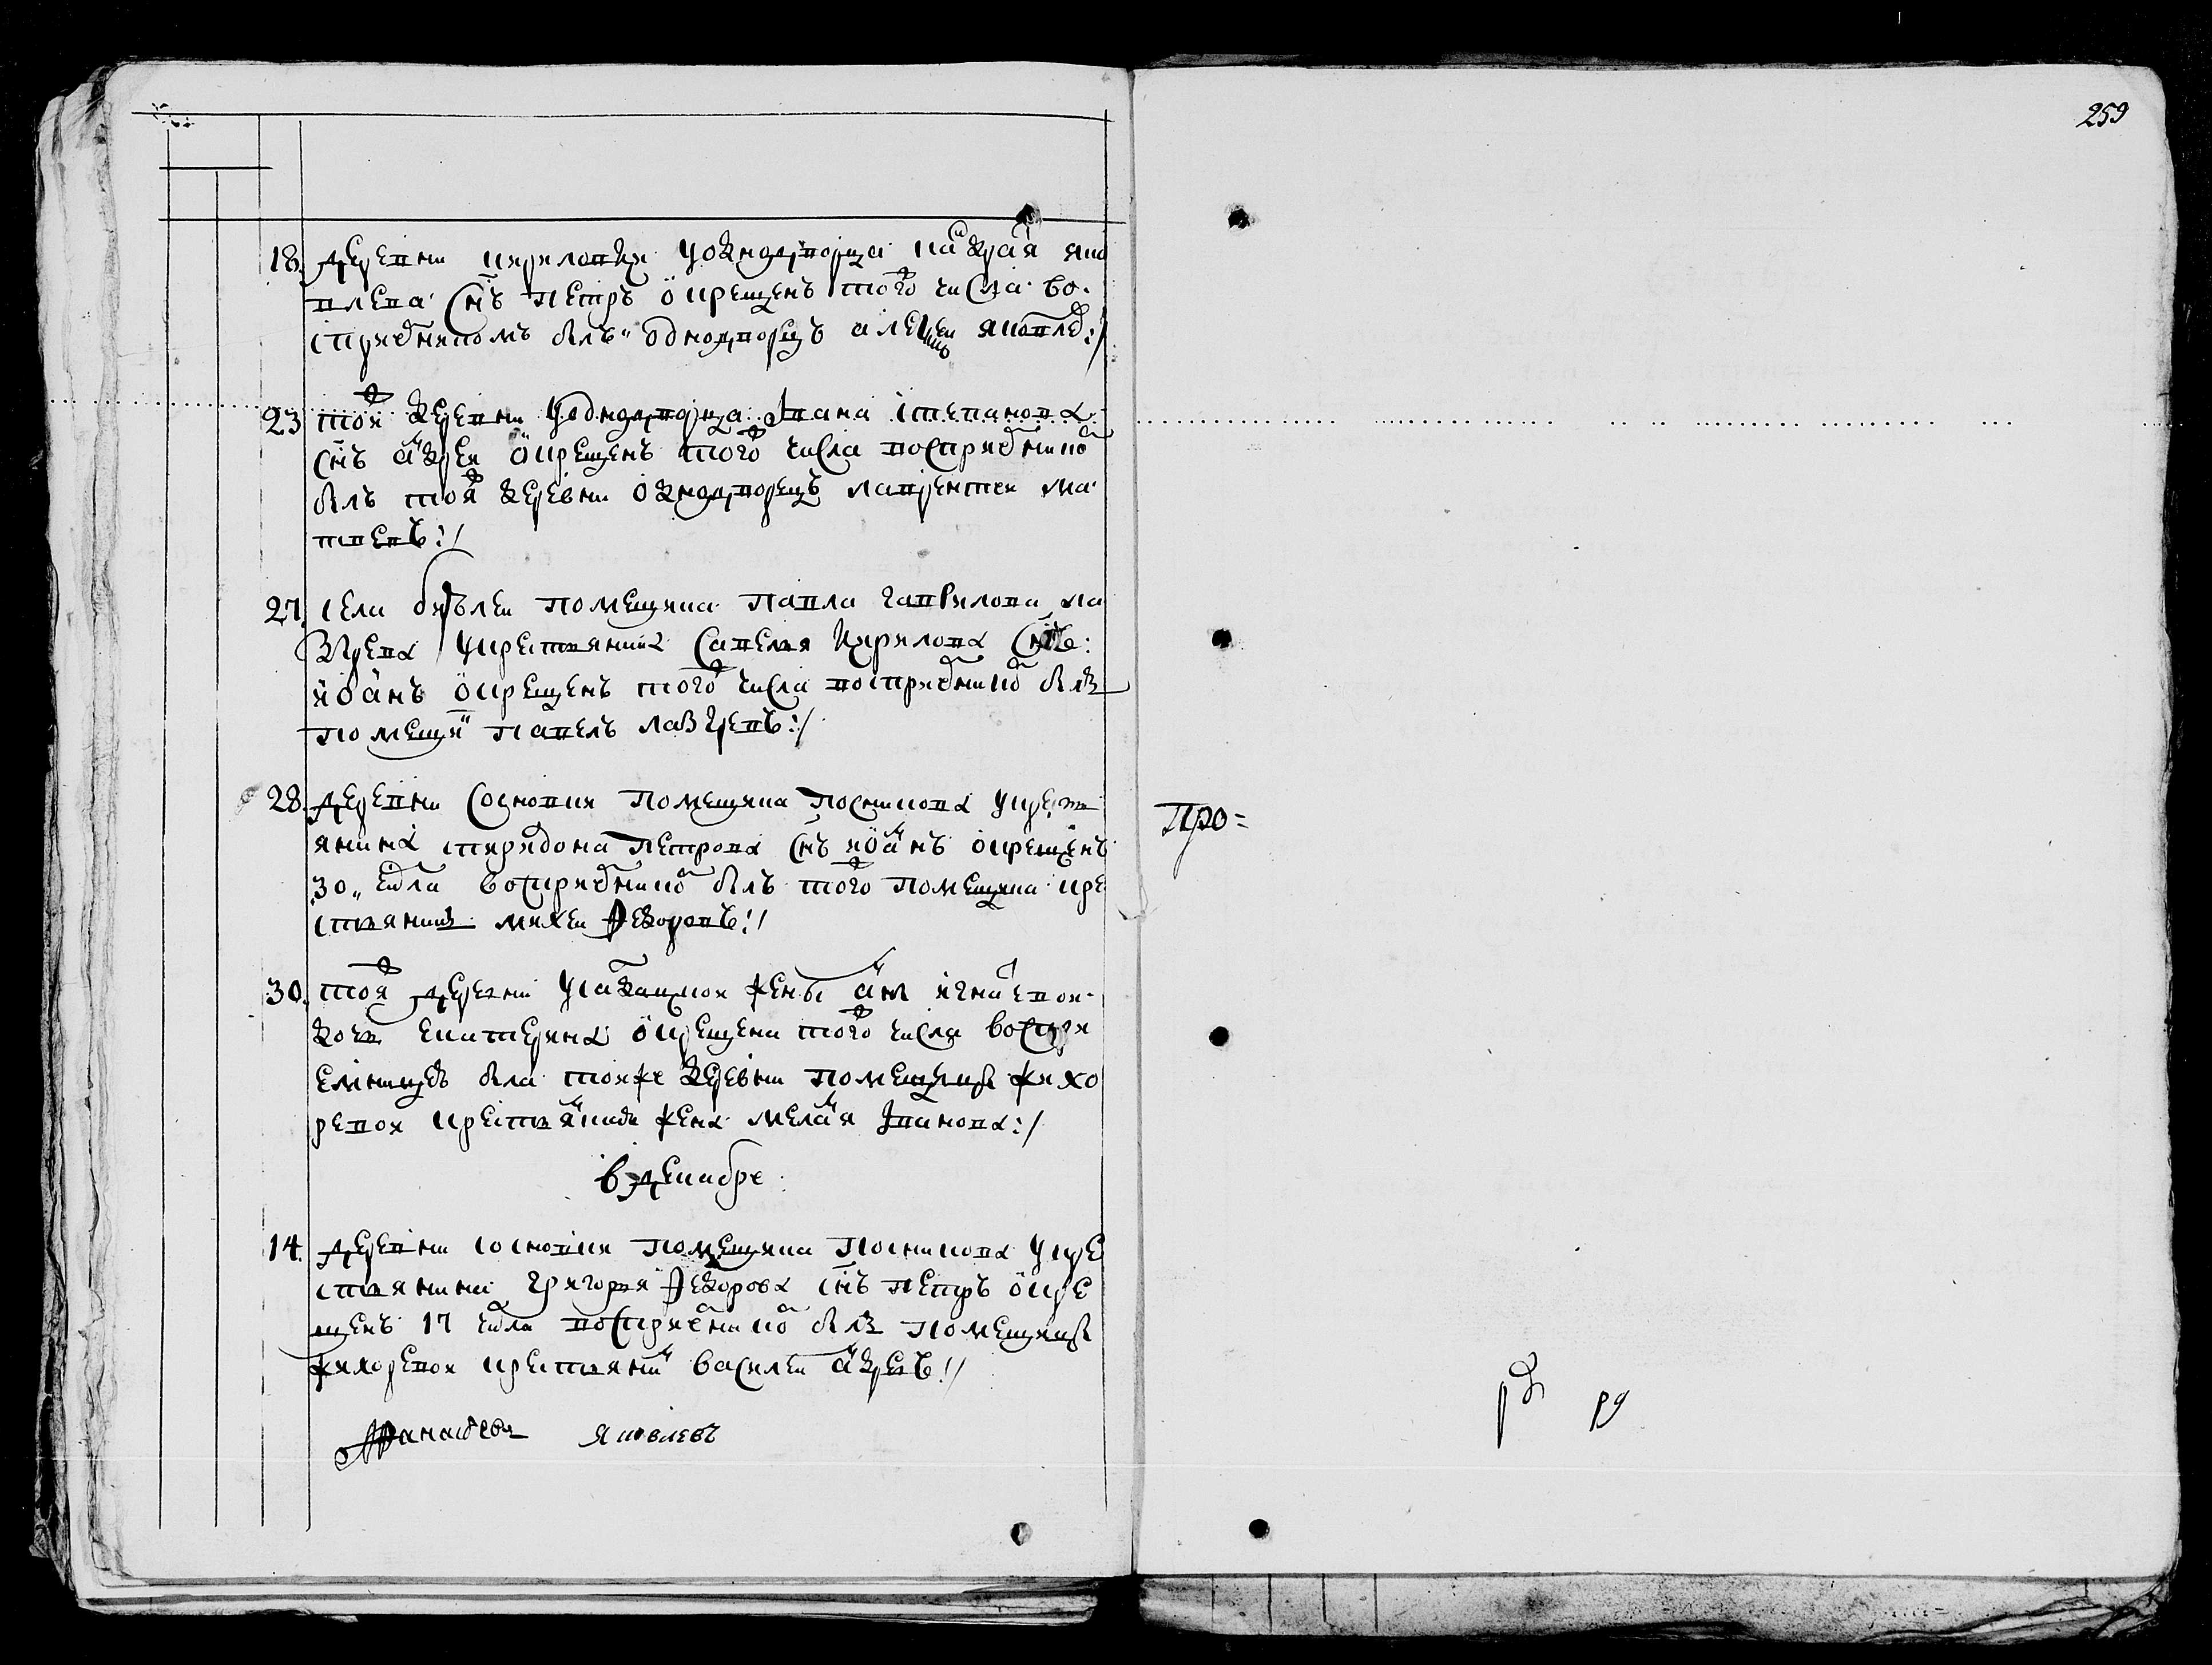 259
18. деревни кириловки уоднодворца накрая яко
влева снъ петръ окрещенъ того числа во
сприемникомъ былъ однодворецъ алеѯеи яковле:/
23 тоя деревни уоднодворца Iвана степанова
снъ андреи окрещенъ того числа восприемнико
былъ тоя деревни однодворецъ лаврентеи ма
твеевъ:/
27. села помещика павла гаврилова ла
зарева укрестьянина савелья кирилова снъ
иванъ окрещенъ того числа восприемнико былъ
помещи павелъ лазаревъ:/
28. деревни сосновки помещика посникова укрест
янина спиридона петрова снъ иванъ окрещенъ
30 числа восприемнико былъ того помещика кре
стьянинъ михеи Ѳедоровъ:/
30. тоя деревни усолдацкои жены анны игнатевои
дочь екатерина окрещена того числа воспри
емницею была тояже деревни помещицы жихо
ревои крестьянина жена меланя Iванова:/
в декабре
14. деревни сосновки помещика посникова укре
стьянина григорья Ѳедорова снъ петръ окре
щенъ 17 числа восприемнико былъ помещицы
жихоревои крестьянинъ василеи андреевъ:/
Афанасеи Яковлевъ
Про=